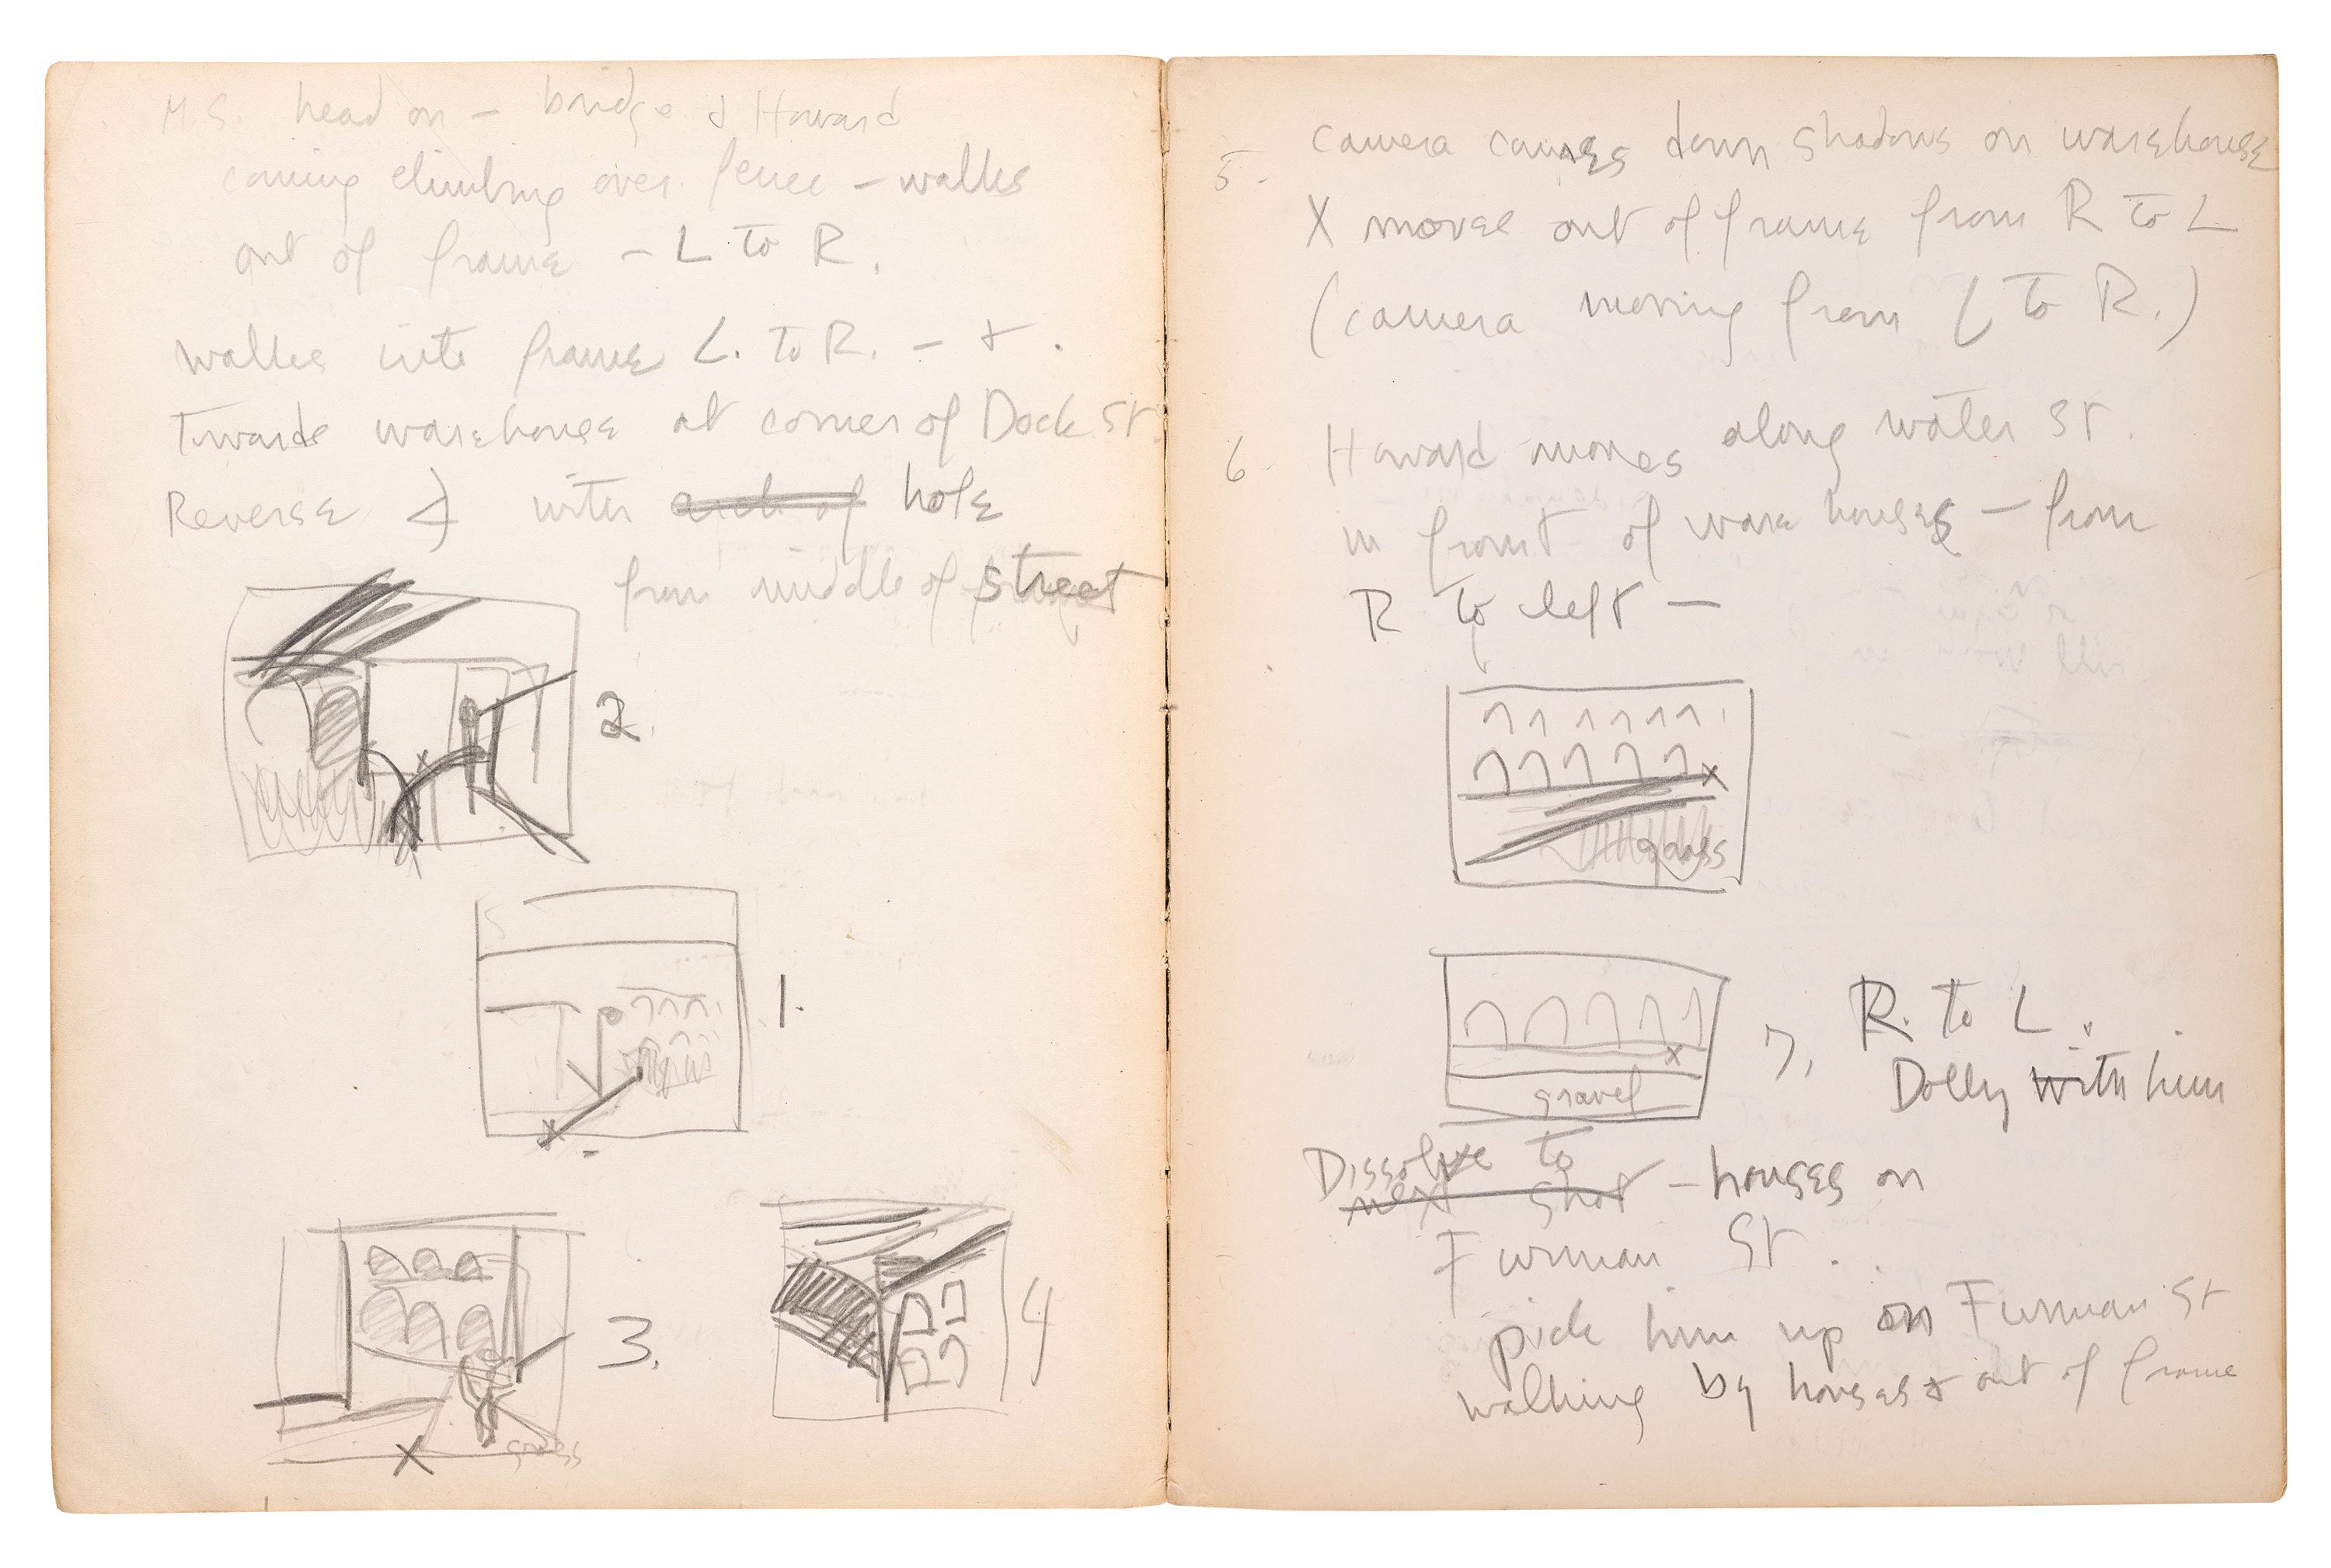 M.S. head on – bridge & Howard
coming climbing over fence – walks
out of frame – L to R.
walks into frame L. to R. – + .
Towards warehouse at corner of Dock St.
Reverse with arch of hole
from middle of street
2.
1.
3.
grass
4
5. camera comes down shadows on warehouse
X moves out of frame from R to L
(camera moving from L to R.)
6. Howard moves along water St.
in front of ware houses – from
R to left –
grass
gravel
7. R. to L.
Dolly with him
Dissolve to
next shot – houses on
Furman St.
pick him up on Furman St
walking by houses & out of frame